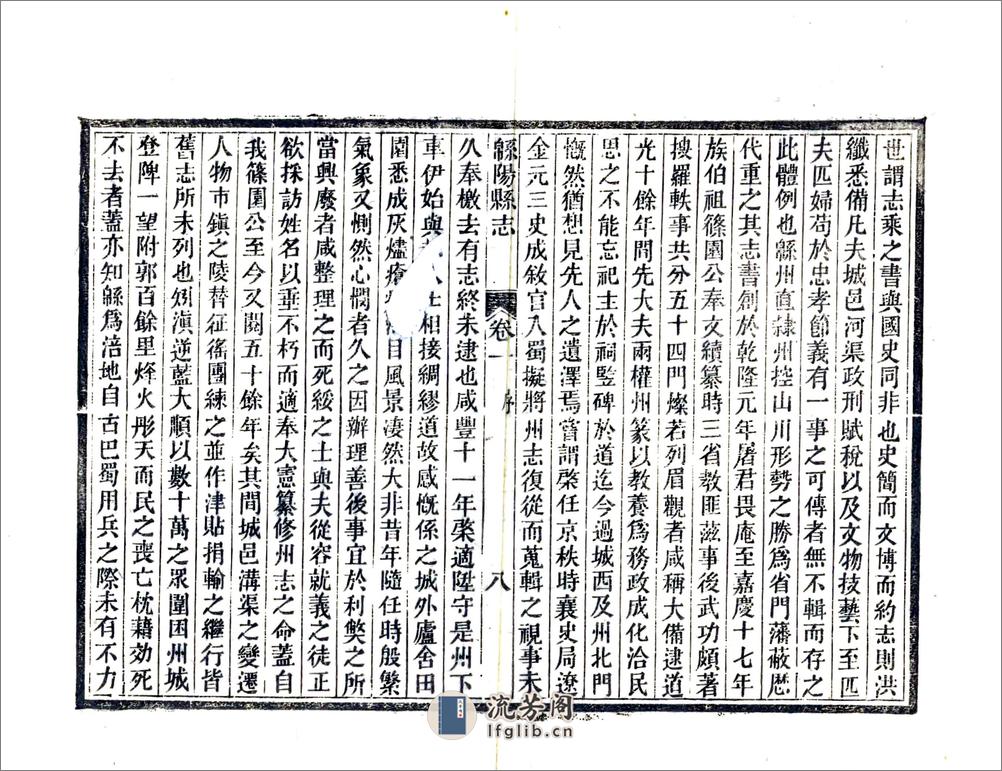 世謂志乘之書與國史同非也史簡而文博而約志則洪
纖悉備凡夫城邑河渠政刑賦稅以及文物技藝下至匹
夫匹婦苟於忠孝節義有一事之可傳者無不輯而存之
此體例也緜州直隸州控山川形勢之勝爲省門藩蔽歴
代重之其志書創於乾隆元年屠君畏庵至嘉慶十七年
族伯祖篠園公奉文續纂時三省敎匪滋事後武功頗著
搜羅軼事共分五十四門燦若列眉觀者咸稱大備逮道
光十餘年間先大夫兩權州篆以教養爲務政成化洽民
思之不能忘祀主於祠監碑於道迄今過城西及州北門
慨然猶想見先人之遺澤焉嘗謂棨任京秩時襄史局遼
金元三史成敘官入蜀擬將州志復從而蒐輯之視事未
緜陽縣志 卷一 序 八
久奉檄去有志終未逮也咸豐十一年棨適陞守是州下
車伊始與 人士相接綢繆道故感慨係之城外廬舍田
園悉成灰燼瘡 目風景凄然大非昔年隨任時殷繁
氣象又惻然心憫者久之因辦理善後事宜於利獘之所
當興廢者咸整理之而死綏之士與夫從容就義之徒正
欲採訪姓名以垂不朽而適奉大憲纂修州志之命蓋自
我篠園公至今又閱五十餘年矣其間城邑溝渠之變遷
人物市鎮之陵替征徭團練之並作津貼捐輸之繼行皆
舊志所未列也矧滇逆藍大順以數十萬之眾圍困州城
登陴一望附郭百餘里烽火彤天而民之喪亡枕藉効死
不去者蓋亦知緜爲涪地自古巴蜀用兵之際未有不力
流芳閣
lfglib.cn